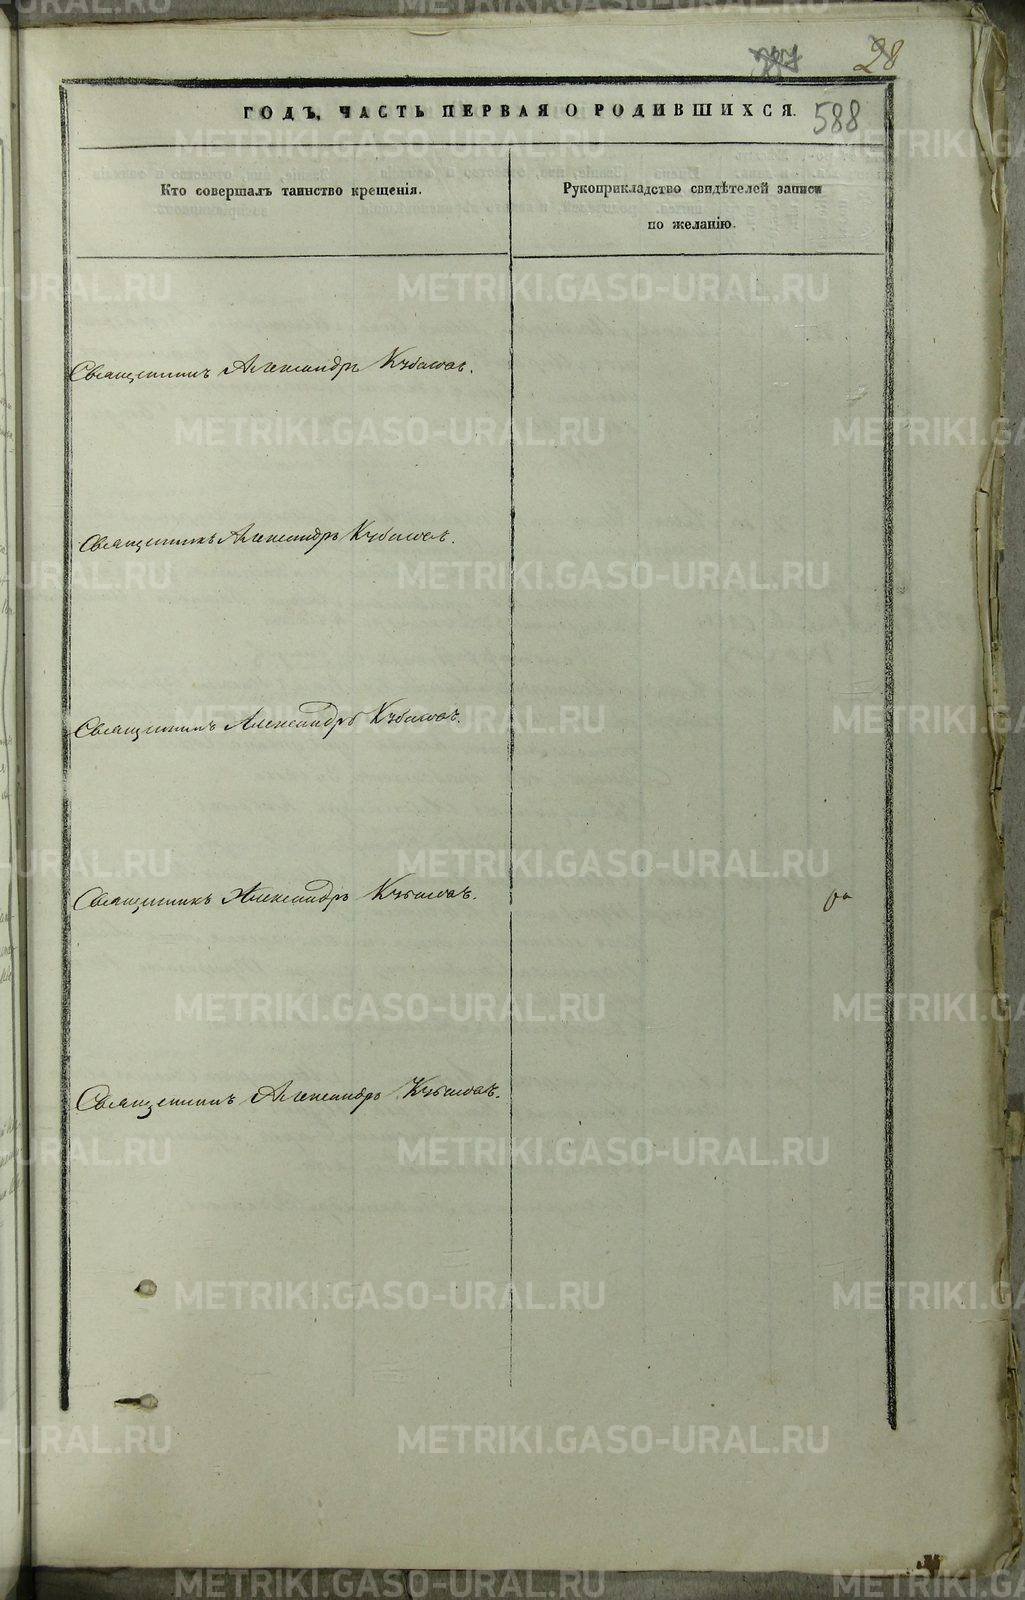 28
587
ГОДЪ, ЧАСТЬ ПЕРВАЯ О РОДИВШИХСЯ.
588
Кто совершалъ таинство крещенія.
Рукоприкладство свидѣтелей записи
по желанію.
Священникъ Александръ
Священникъ Александръ
Священникъ Александръ
Священникъ Александръ
Священникъ Александръ
METRIKI.GASO-URAL.RU